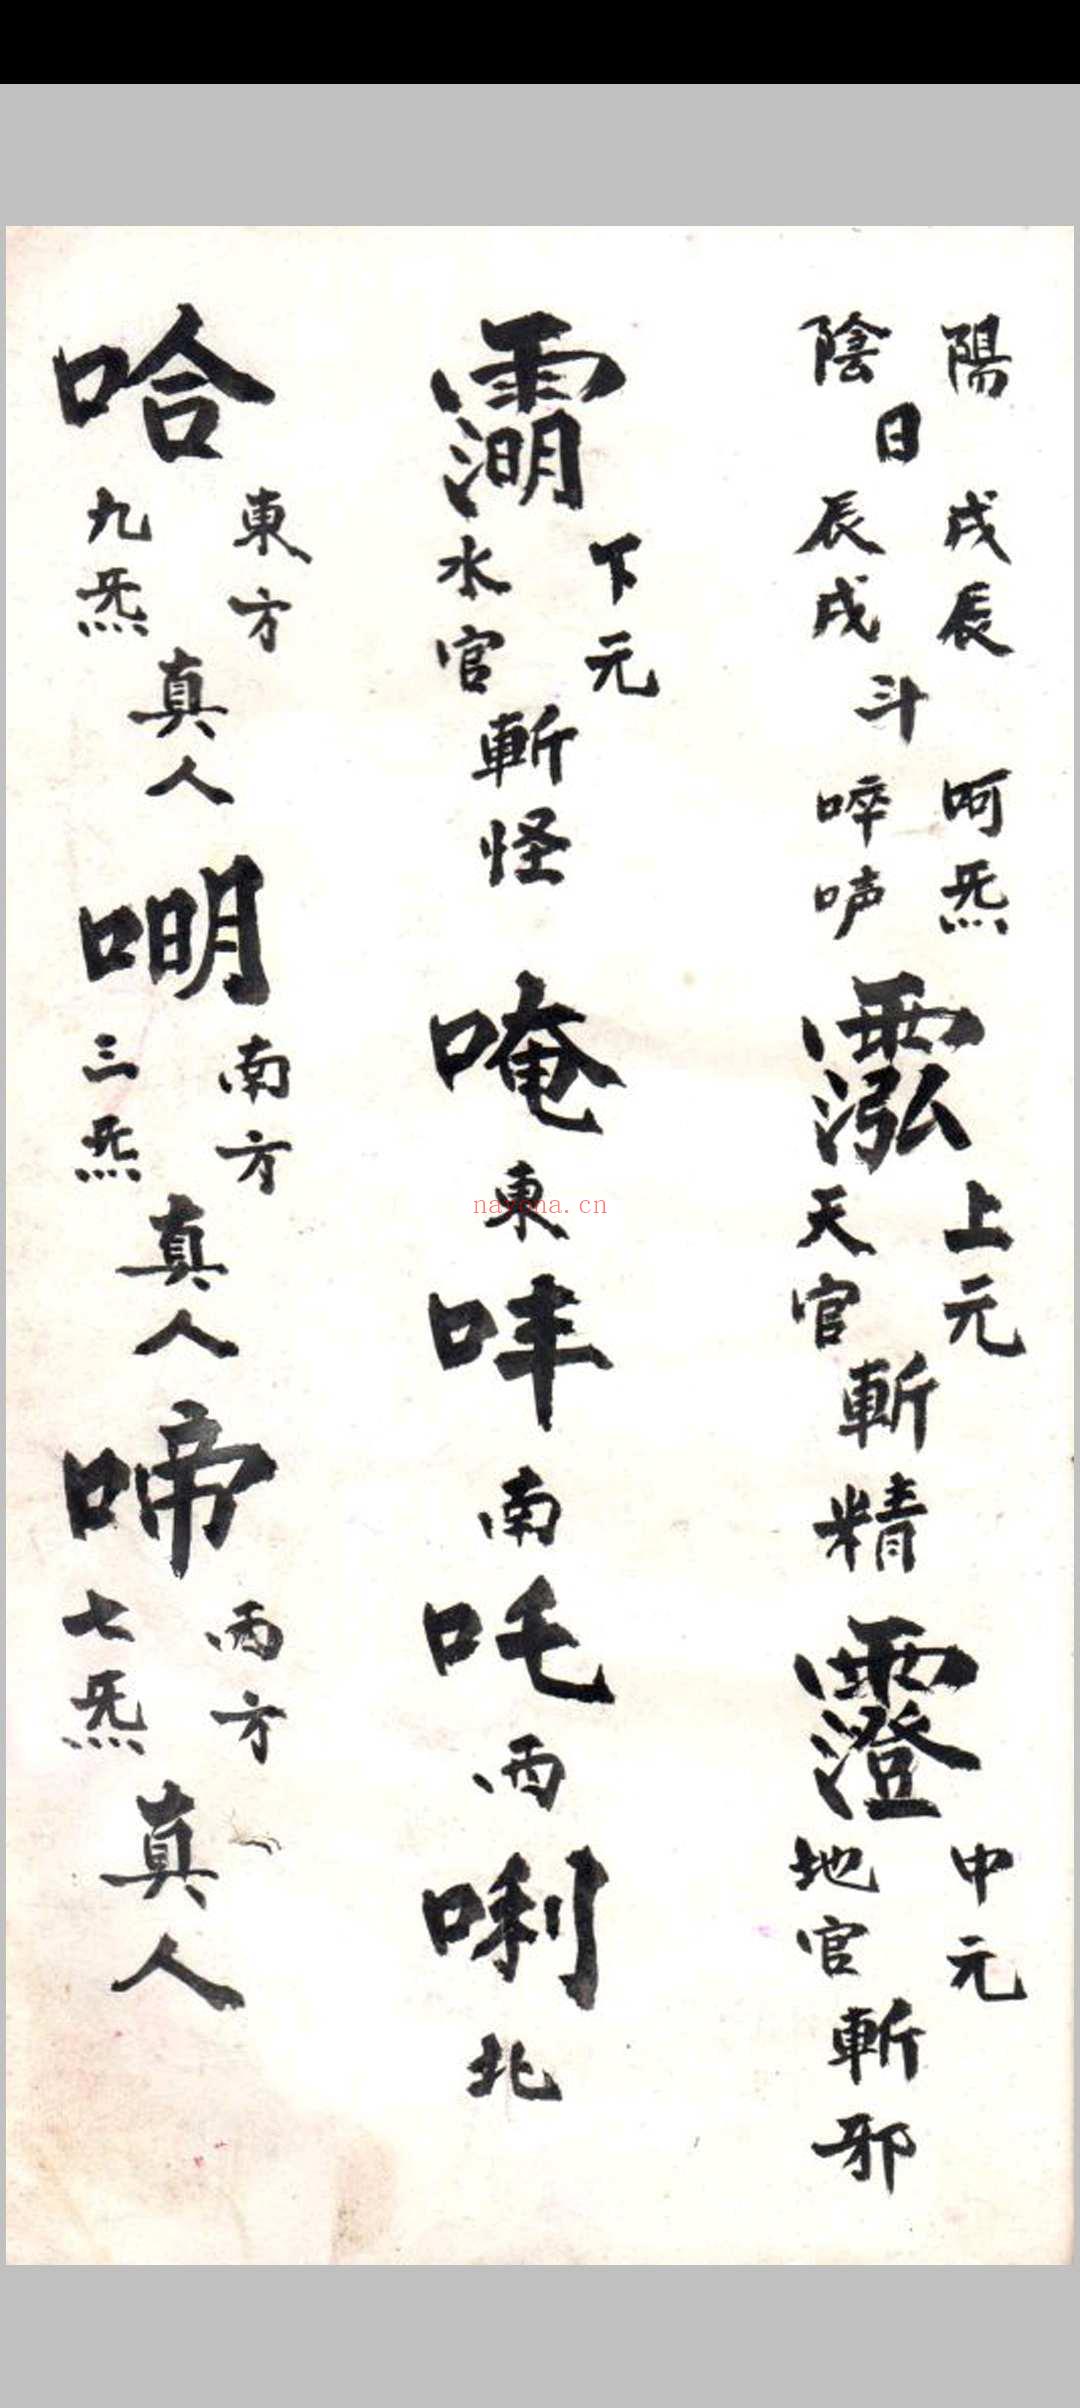 陽陰日戌辰辰戌斗呵炁啐吶𩃎上元天官斬精𩆍中元地官斬邪
下元水官斬怪唵東吽南吒西唎北
哈東方九炁真人㖼南方三炁真人啼西方七炁真人
nayona.cn